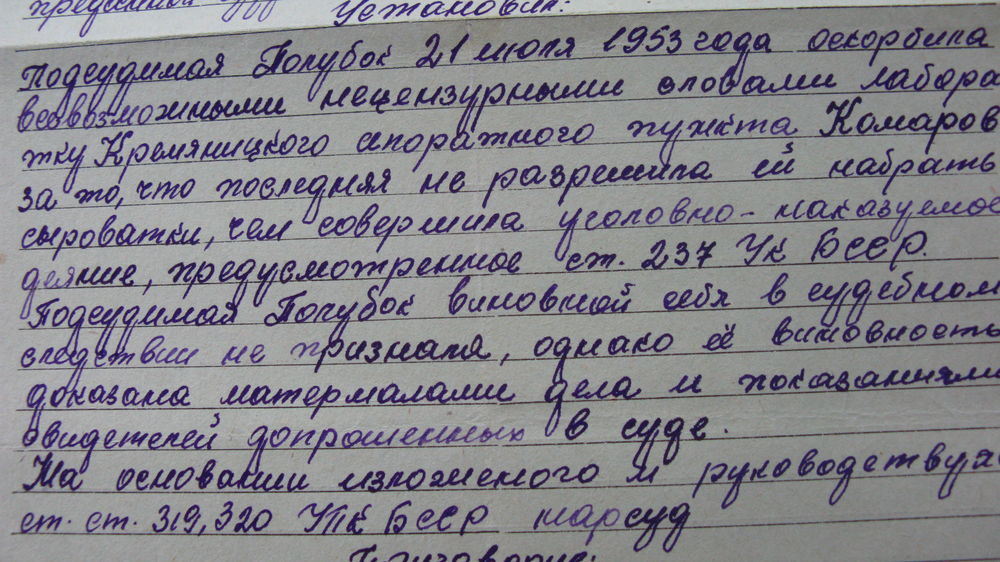 Установил:
Подсудимая Полубок 21 июля 1953 года оскорбила
всевозможными нецензурными словами лабора
тку Кремяницкого сепоратного пункта Комаров
за то, что последняя не разрешила ей набрать
сыроватки, чем совершила уголовно-наказуемое
деяние, предусмотренное ст. 237 УК БССР.
Подсудимая Полубок виновной себя в судебном
следствии не признала, однако её виновность
доказана материалами дела и показаниями
свидетелей допрошенных в суде.
На основании изложеного и руководствуяс
ст. ст. 319, 320 УПК БССР нарсуд
Приговорил: